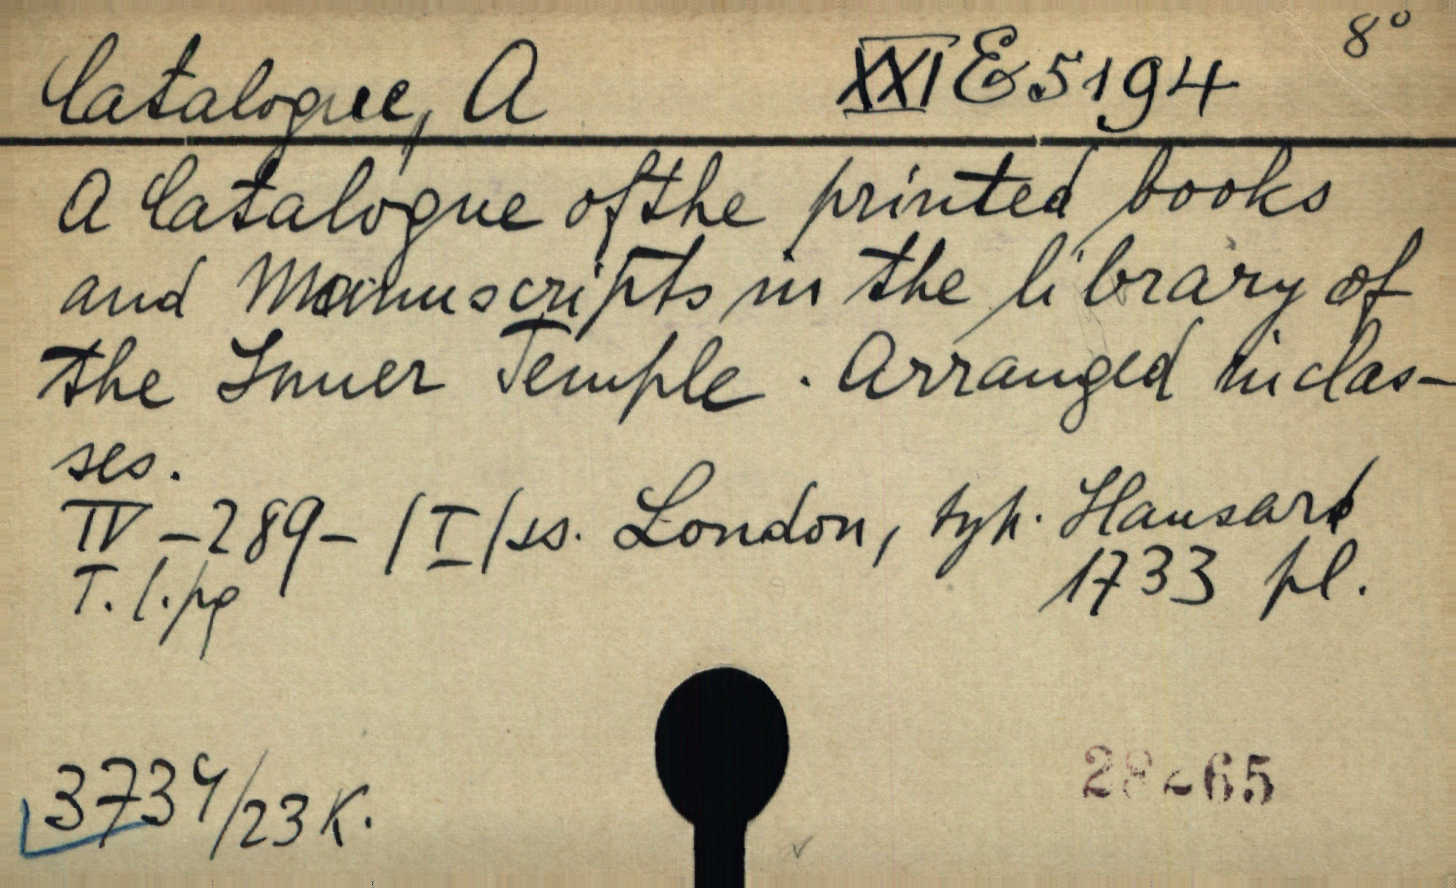 8°
Catalogue, A XXI E 5194
A Catalogue of the printed books
and Manuscripts in the library of
the Inner Temple. Arranged in clas-
ses.
IV-289-/I/ss. London, typ. Hansard
1733 pl.
T. l. pg
/23 K.